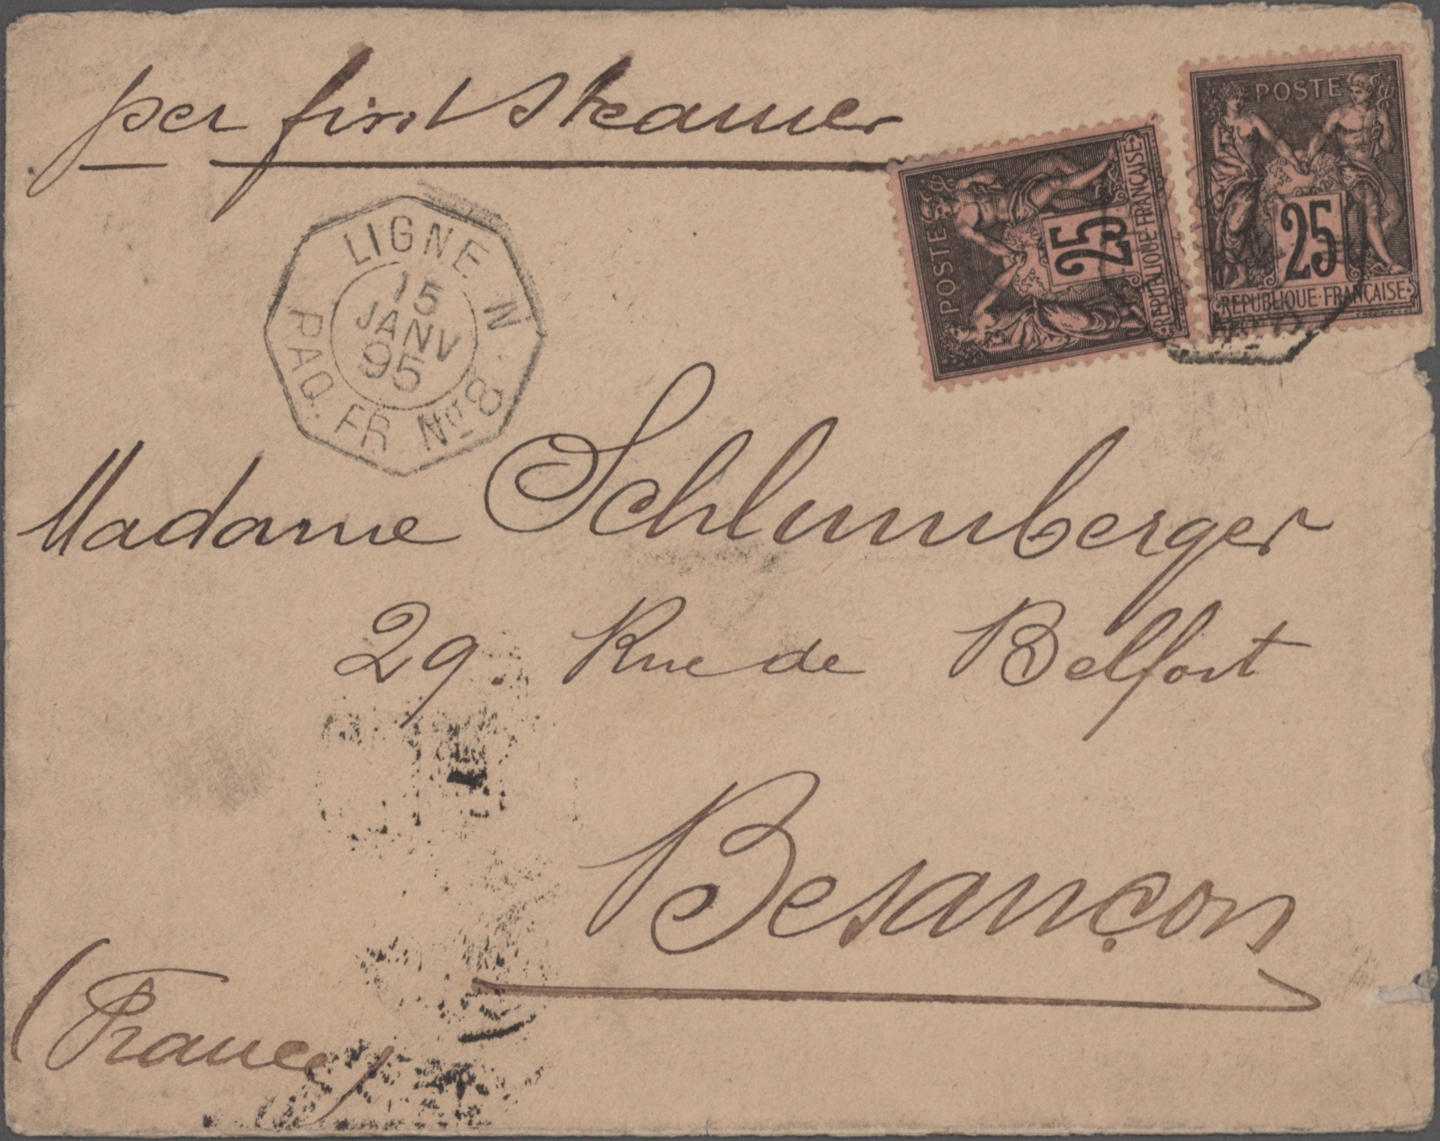 per first steamer
POSTE
25
REPUBLIQUE·FRANÇAISE
POSTE
25
REPUBLIQUE·FRANÇAISE
LIGNE N
15
JANV
95
PAQ. FR. No 8
Madame Schlumberger
29. Rue de Belfort
Besançon
(France)